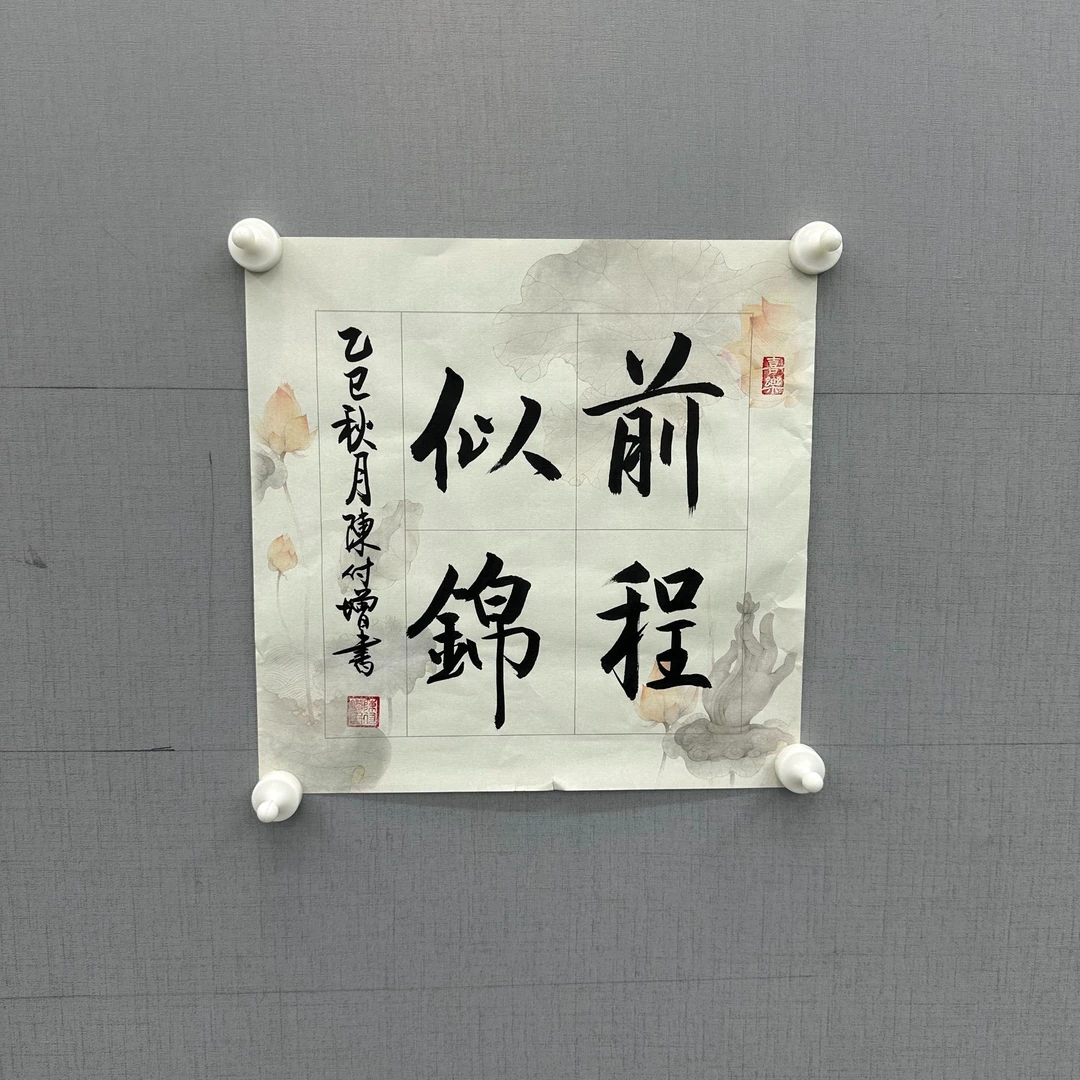 前程
似錦
乙巳秋月陳付增書
喜樂